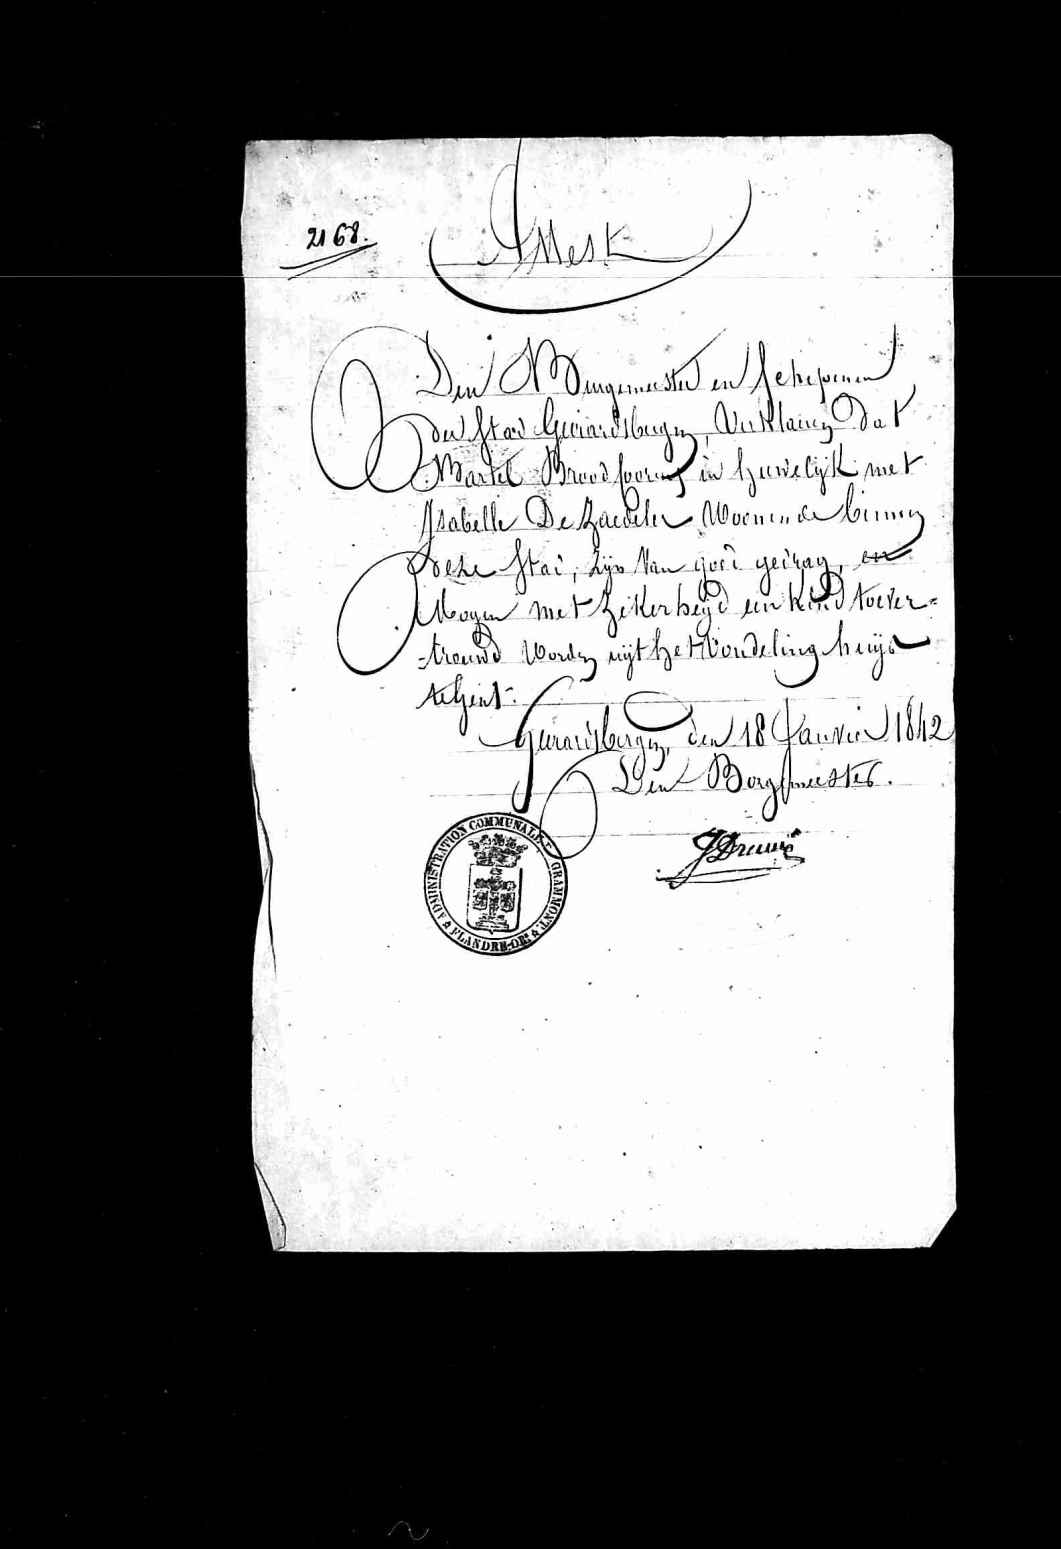 2168.
Attest
Den Burgemeester en Schepenen
der Stad Gerardsbergen, Verklaren dat
Martel Broodcoorens in huwelijk met
Isabelle De Raedeler Woonende binnen
deze Stad, zijn Van goed gedrag, en
Mogen met Zekerheijd een kind toever-
-trouwd Worden uijt het Vondeling huijs
te Gend.
Gerardsbergen, den 18 Janvier 1842
Den Borgemeester.
ADMINISTRATION COMMUNALE GRAMMONT.
FLANDRE-ORle